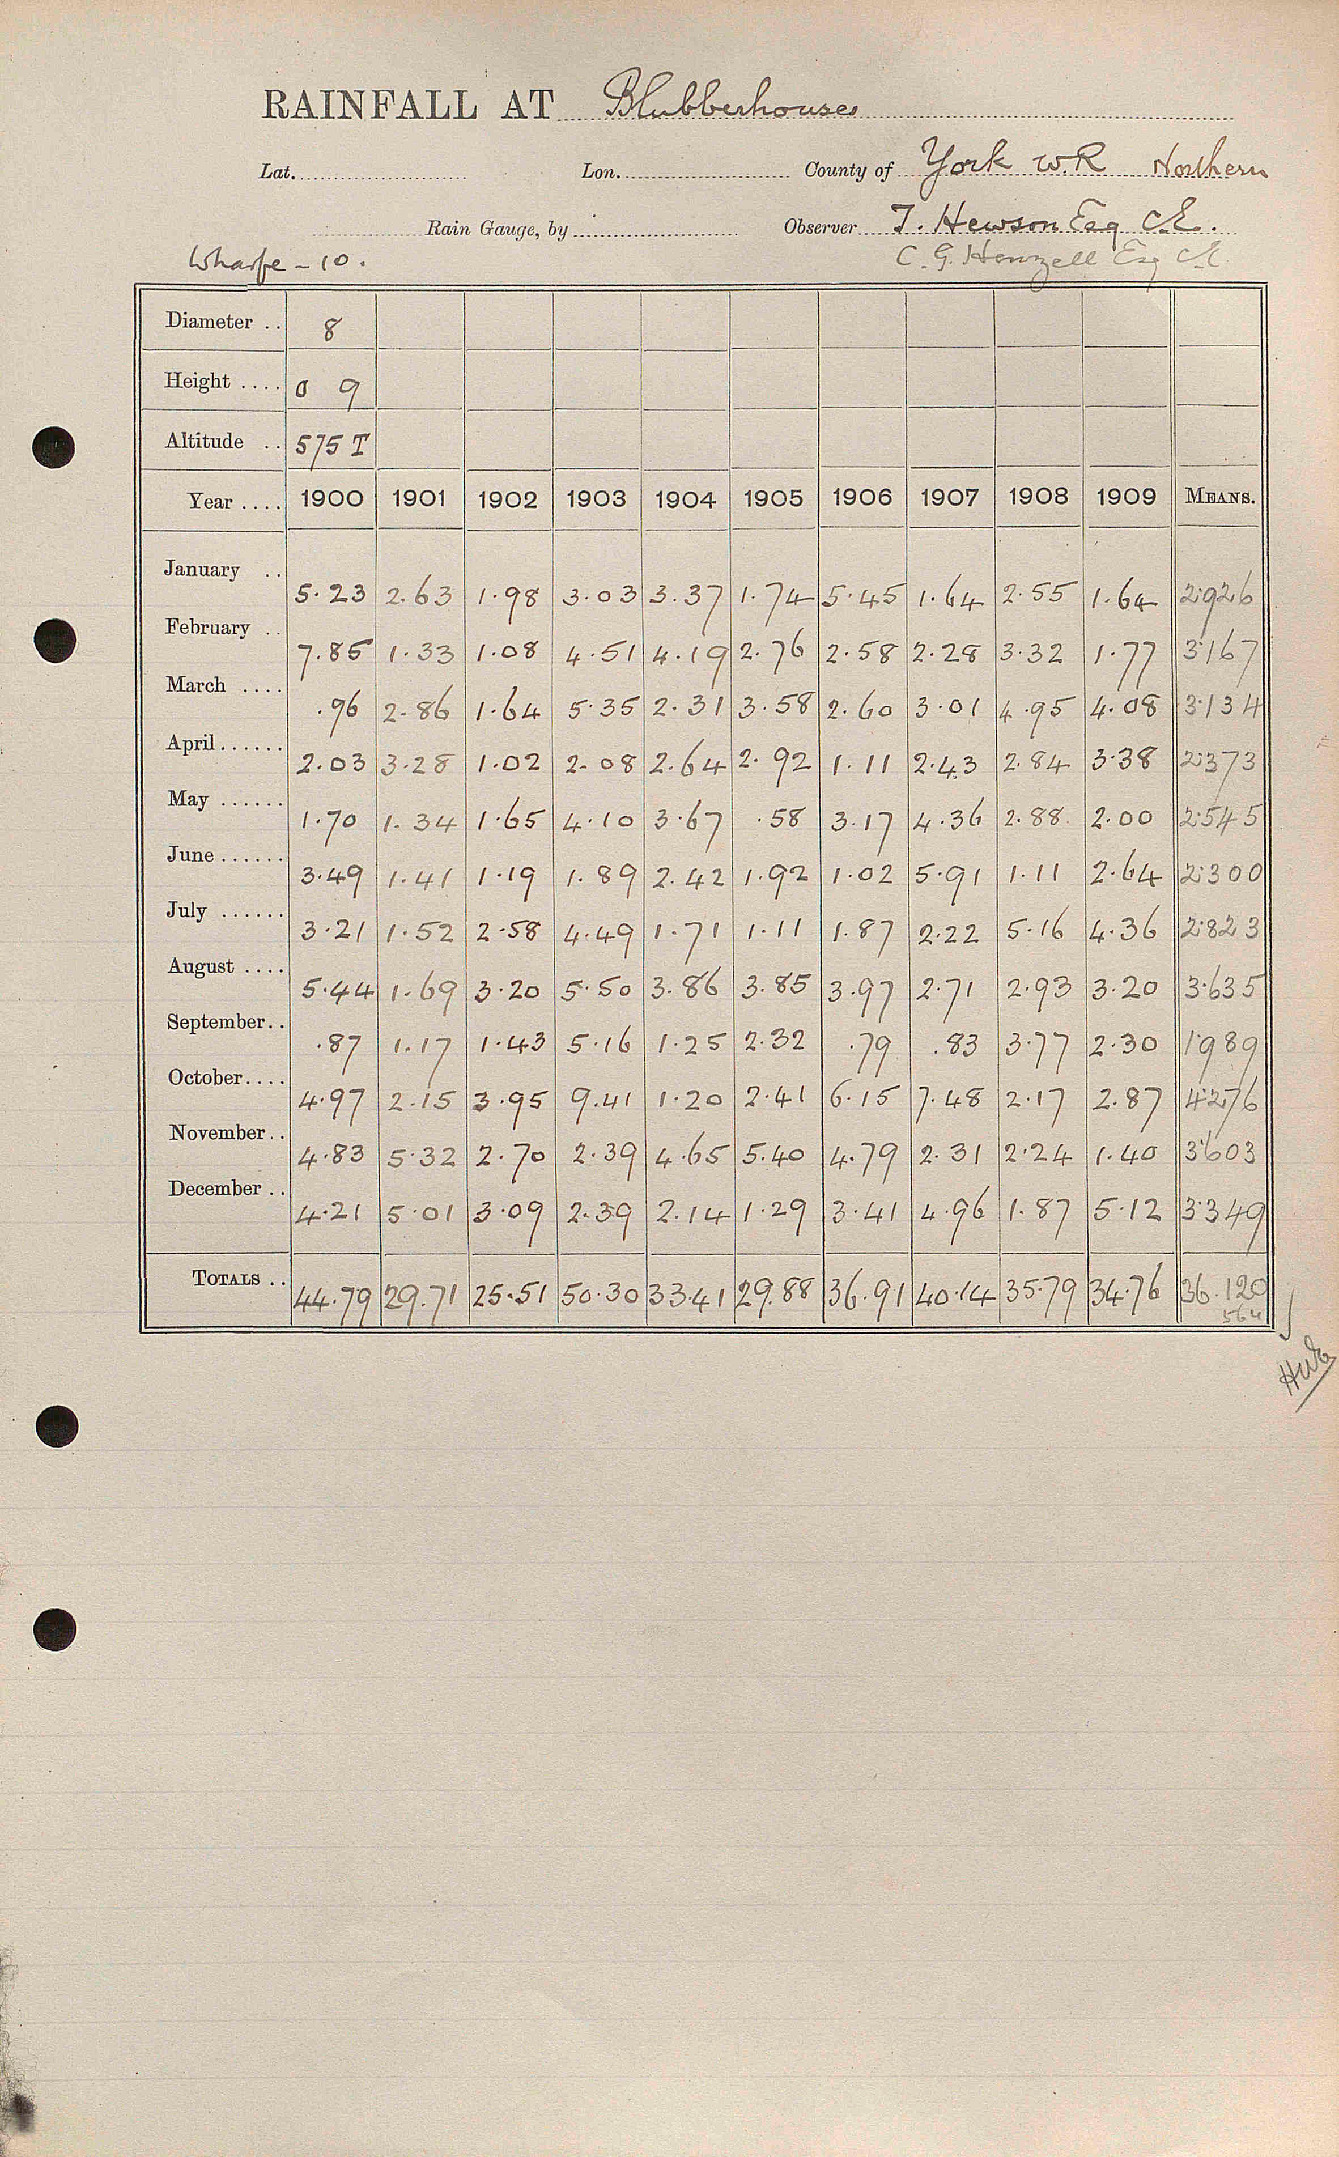 RAINFALL AT Blubberhouses
Lat. Lon. County of York W.R Northern
Rain Gauge, by Observer T. Hewson Esq C.E.
Wharfe - 10. C. G. Henzell Esq C.E.
Diameter .. 8
Height .... 0 9
Altitude .. 575 T
Year .... 1900 1901 1902 1903 1904 1905 1906 1907 1908 1909 MEANS.
January .. 5.23 2.63 1.98 3.03 3.37 1.74 5.45 1.64 2.55 1.64 2.926
February .. 7.85 1.33 1.08 4.51 4.19 2.76 2.58 2.28 3.32 1.77 3.167
March .... .96 2.86 1.64 5.35 2.31 3.58 2.60 3.01 4.95 4.08 3.134
April ...... 2.03 3.28 1.02 2.08 2.64 2.92 1.11 2.43 2.84 3.38 2.373
May ...... 1.70 1.34 1.65 4.10 3.67 .58 3.17 4.36 2.88 2.00 2.545
June ...... 3.49 1.41 1.19 1.89 2.42 1.92 1.02 5.91 1.11 2.64 2.300
July ...... 3.21 1.52 2.58 4.49 1.71 1.11 1.87 2.22 5.16 4.36 2.823
August .... 5.44 1.69 3.20 5.50 3.86 3.85 3.97 2.71 2.93 3.20 3.635
September.. .87 1.17 1.43 5.16 1.25 2.32 .79 .83 3.77 2.30 1.989
October.... 4.97 2.15 3.95 9.41 1.20 2.41 6.15 7.48 2.17 2.87 4.276
November.. 4.83 5.32 2.70 2.39 4.65 5.40 4.79 2.31 2.24 1.40 3.603
December .. 4.21 5.01 3.09 2.39 2.14 1.29 3.41 4.96 1.87 5.12 3.349
TOTALS .. 44.79 29.71 25.51 50.30 33.41 29.88 36.91 40.14 35.79 34.76 36.120
564